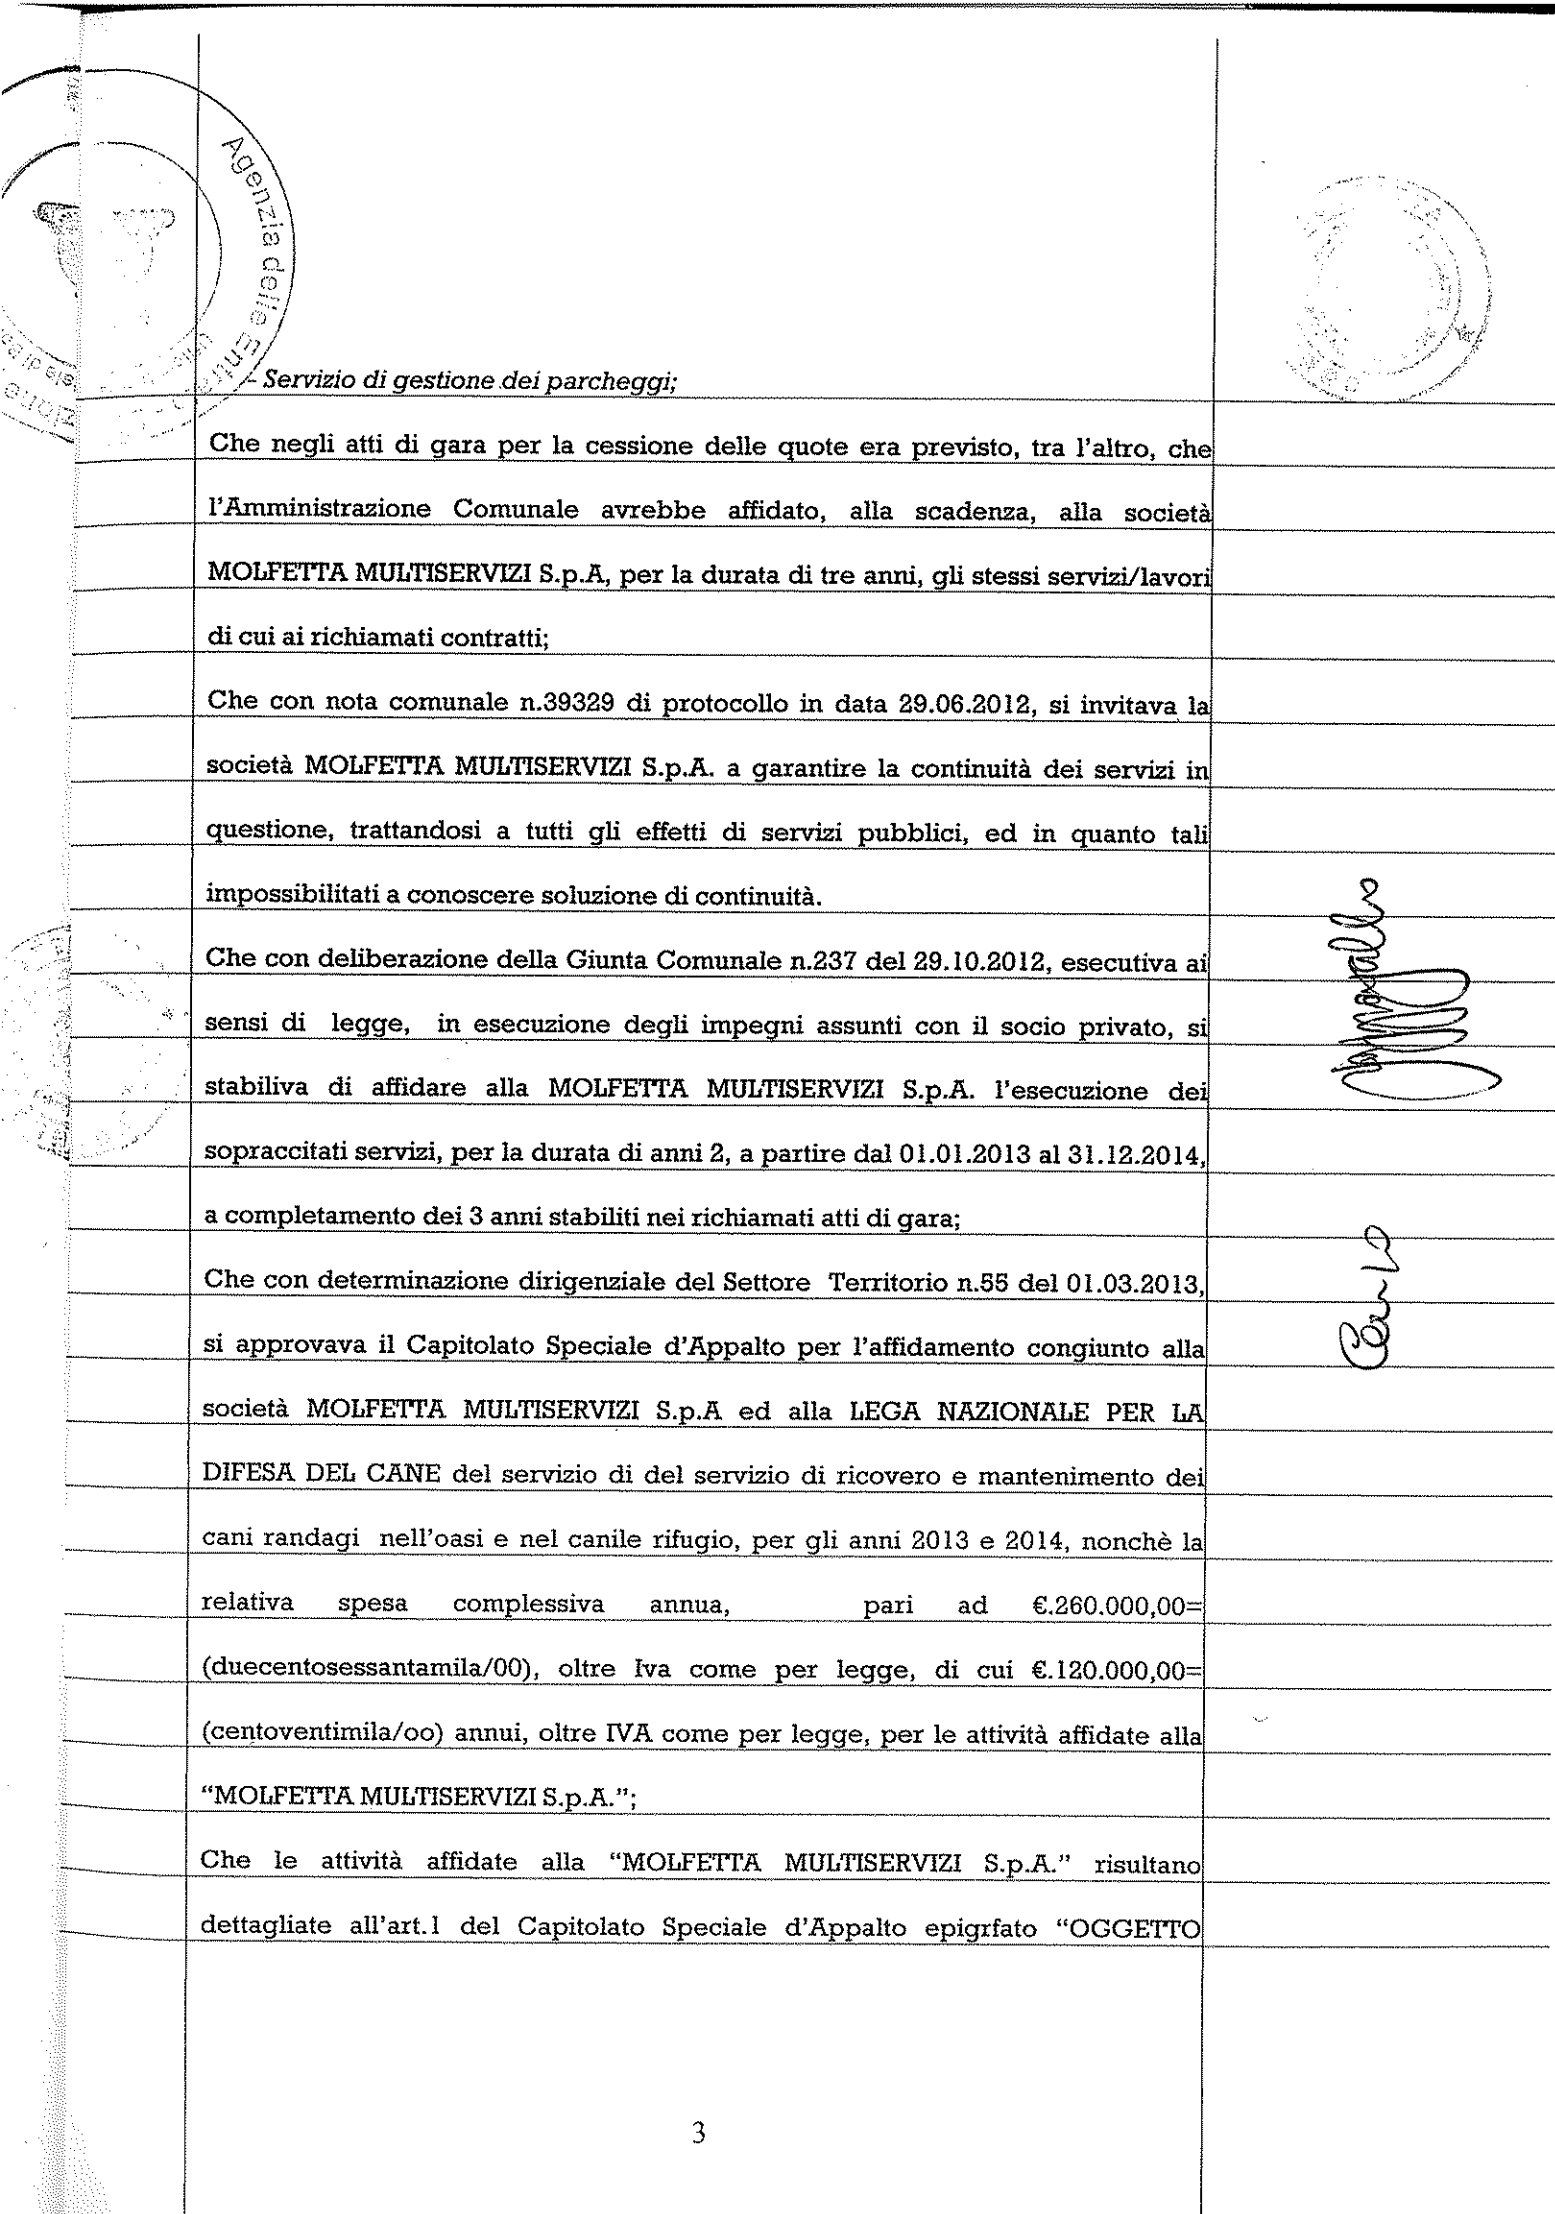 Agenzia delle Entrate
- Servizio di gestione dei parcheggi;
Che negli atti di gara per la cessione delle quote era previsto, tra l'altro, che
l'Amministrazione Comunale avrebbe affidato, alla scadenza, alla società
MOLFETTA MULTISERVIZI S.p.A, per la durata di tre anni, gli stessi servizi/lavori
di cui ai richiamati contratti;
Che con nota comunale n.39329 di protocollo in data 29.06.2012, si invitava la
società MOLFETTA MULTISERVIZI S.p.A. a garantire la continuità dei servizi in
questione, trattandosi a tutti gli effetti di servizi pubblici, ed in quanto tali
impossibilitati a conoscere soluzione di continuità.
Che con deliberazione della Giunta Comunale n.237 del 29.10.2012, esecutiva ai
sensi di legge, in esecuzione degli impegni assunti con il socio privato, si
stabiliva di affidare alla MOLFETTA MULTISERVIZI S.p.A. l'esecuzione dei
sopraccitati servizi, per la durata di anni 2, a partire dal 01.01.2013 al 31.12.2014,
a completamento dei 3 anni stabiliti nei richiamati atti di gara;
Che con determinazione dirigenziale del Settore Territorio n.55 del 01.03.2013,
si approvava il Capitolato Speciale d'Appalto per l'affidamento congiunto alla
società MOLFETTA MULTISERVIZI S.p.A ed alla LEGA NAZIONALE PER LA
DIFESA DEL CANE del servizio di del servizio di ricovero e mantenimento dei
cani randagi nell'oasi e nel canile rifugio, per gli anni 2013 e 2014, nonchè la
relativa spesa complessiva annua, pari ad €.260.000,00=
(duecentosessantamila/00), oltre Iva come per legge, di cui €.120.000,00=
(centoventimila/oo) annui, oltre IVA come per legge, per le attività affidate alla
“MOLFETTA MULTISERVIZI S.p.A.”;
Che le attività affidate alla “MOLFETTA MULTISERVIZI S.p.A.” risultano
dettagliate all'art.1 del Capitolato Speciale d'Appalto epigrfato “OGGETTO
3